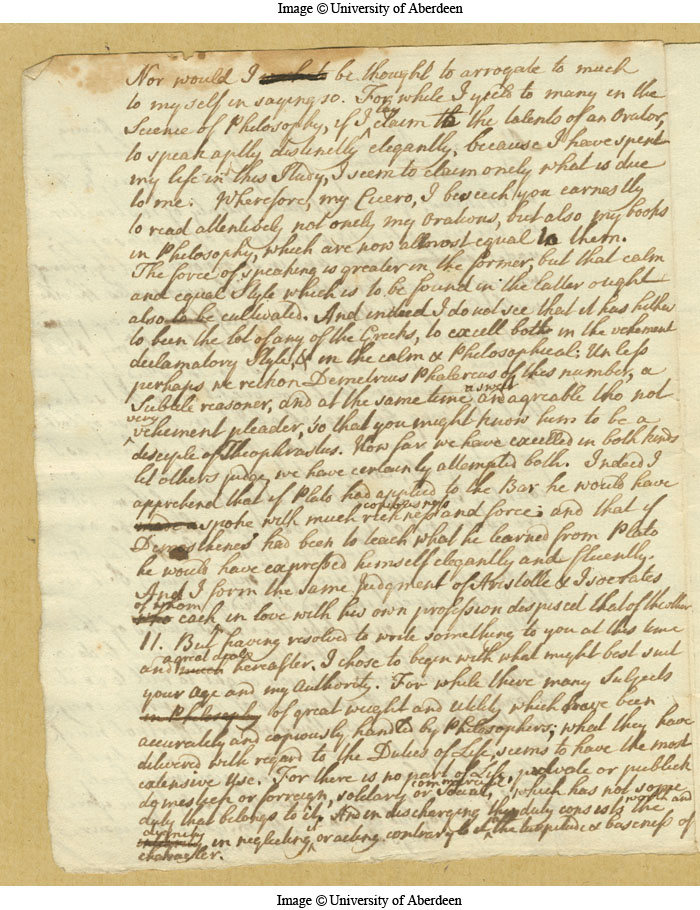 Image © University of Aberdeen
Nor would I be thought to arrogate to much
to my self in saying so. For while I yield to many in the
Science of Philosophy, if I claim the talents of an Orator,
to speak aptly distinctly elegantly, because I have spent
my life in this Study, I seem to claim onely what is due
to me. Wherefore, my Cicero, I beseech you earnestly
to read attentively not onely my Orations, but also my books
in Philosophy, which are now allmost equal to them.
The force of speaking is greater in the former, but that calm
and equal Style which is to be found in the latter ought
also to be cultivated. And indeed I do not see that it has hither
to been the lot of any of the Greeks, to excell both in the vehement
declamatory Style, & in the calm & Philosophical: Unless
perhaps we rekhon Demetrius Phalereus of this number, a
Subtile reasoner, and at the same time an agreable tho not
as well
very
vehement pleader, so that you might know him to be a
disciple of Theophrastus. How far we have excelled in both kinds
let others judge, we have certainly attempted both. Indeed I
apprehend that if Plato had applied to the Bar he would have
copiousness
spoke with much richness and force: and that if
Demosthenes had been to teach what he learned from Plato
he would have expressed himself elegantly and fluently.
And I form the same Judgment of Aristotle & Isocrates
of whom
each in love with his own profession despised that of the other
11. But having resolved to write something to you at this time
a great deal
and hereafter. I chose to begin with what might best suit
your Age and my Authority. For while there many Subjects
in Philosophy of great weight and Utility which have been
accurately and copiously handled by Philosophers; what they have
delivered with regard to the Duties of Life, seems to have the most
extensive Use. For there is no part of Life, private or publick
domestick or forreign, solitary or Social, which has not some
duty that belongs to it. And in discharging duty consists the
worth and
dignity
in neglecting it or acting contrary to it the turpitude & baseness of
character.
Image © University of Aberdeen